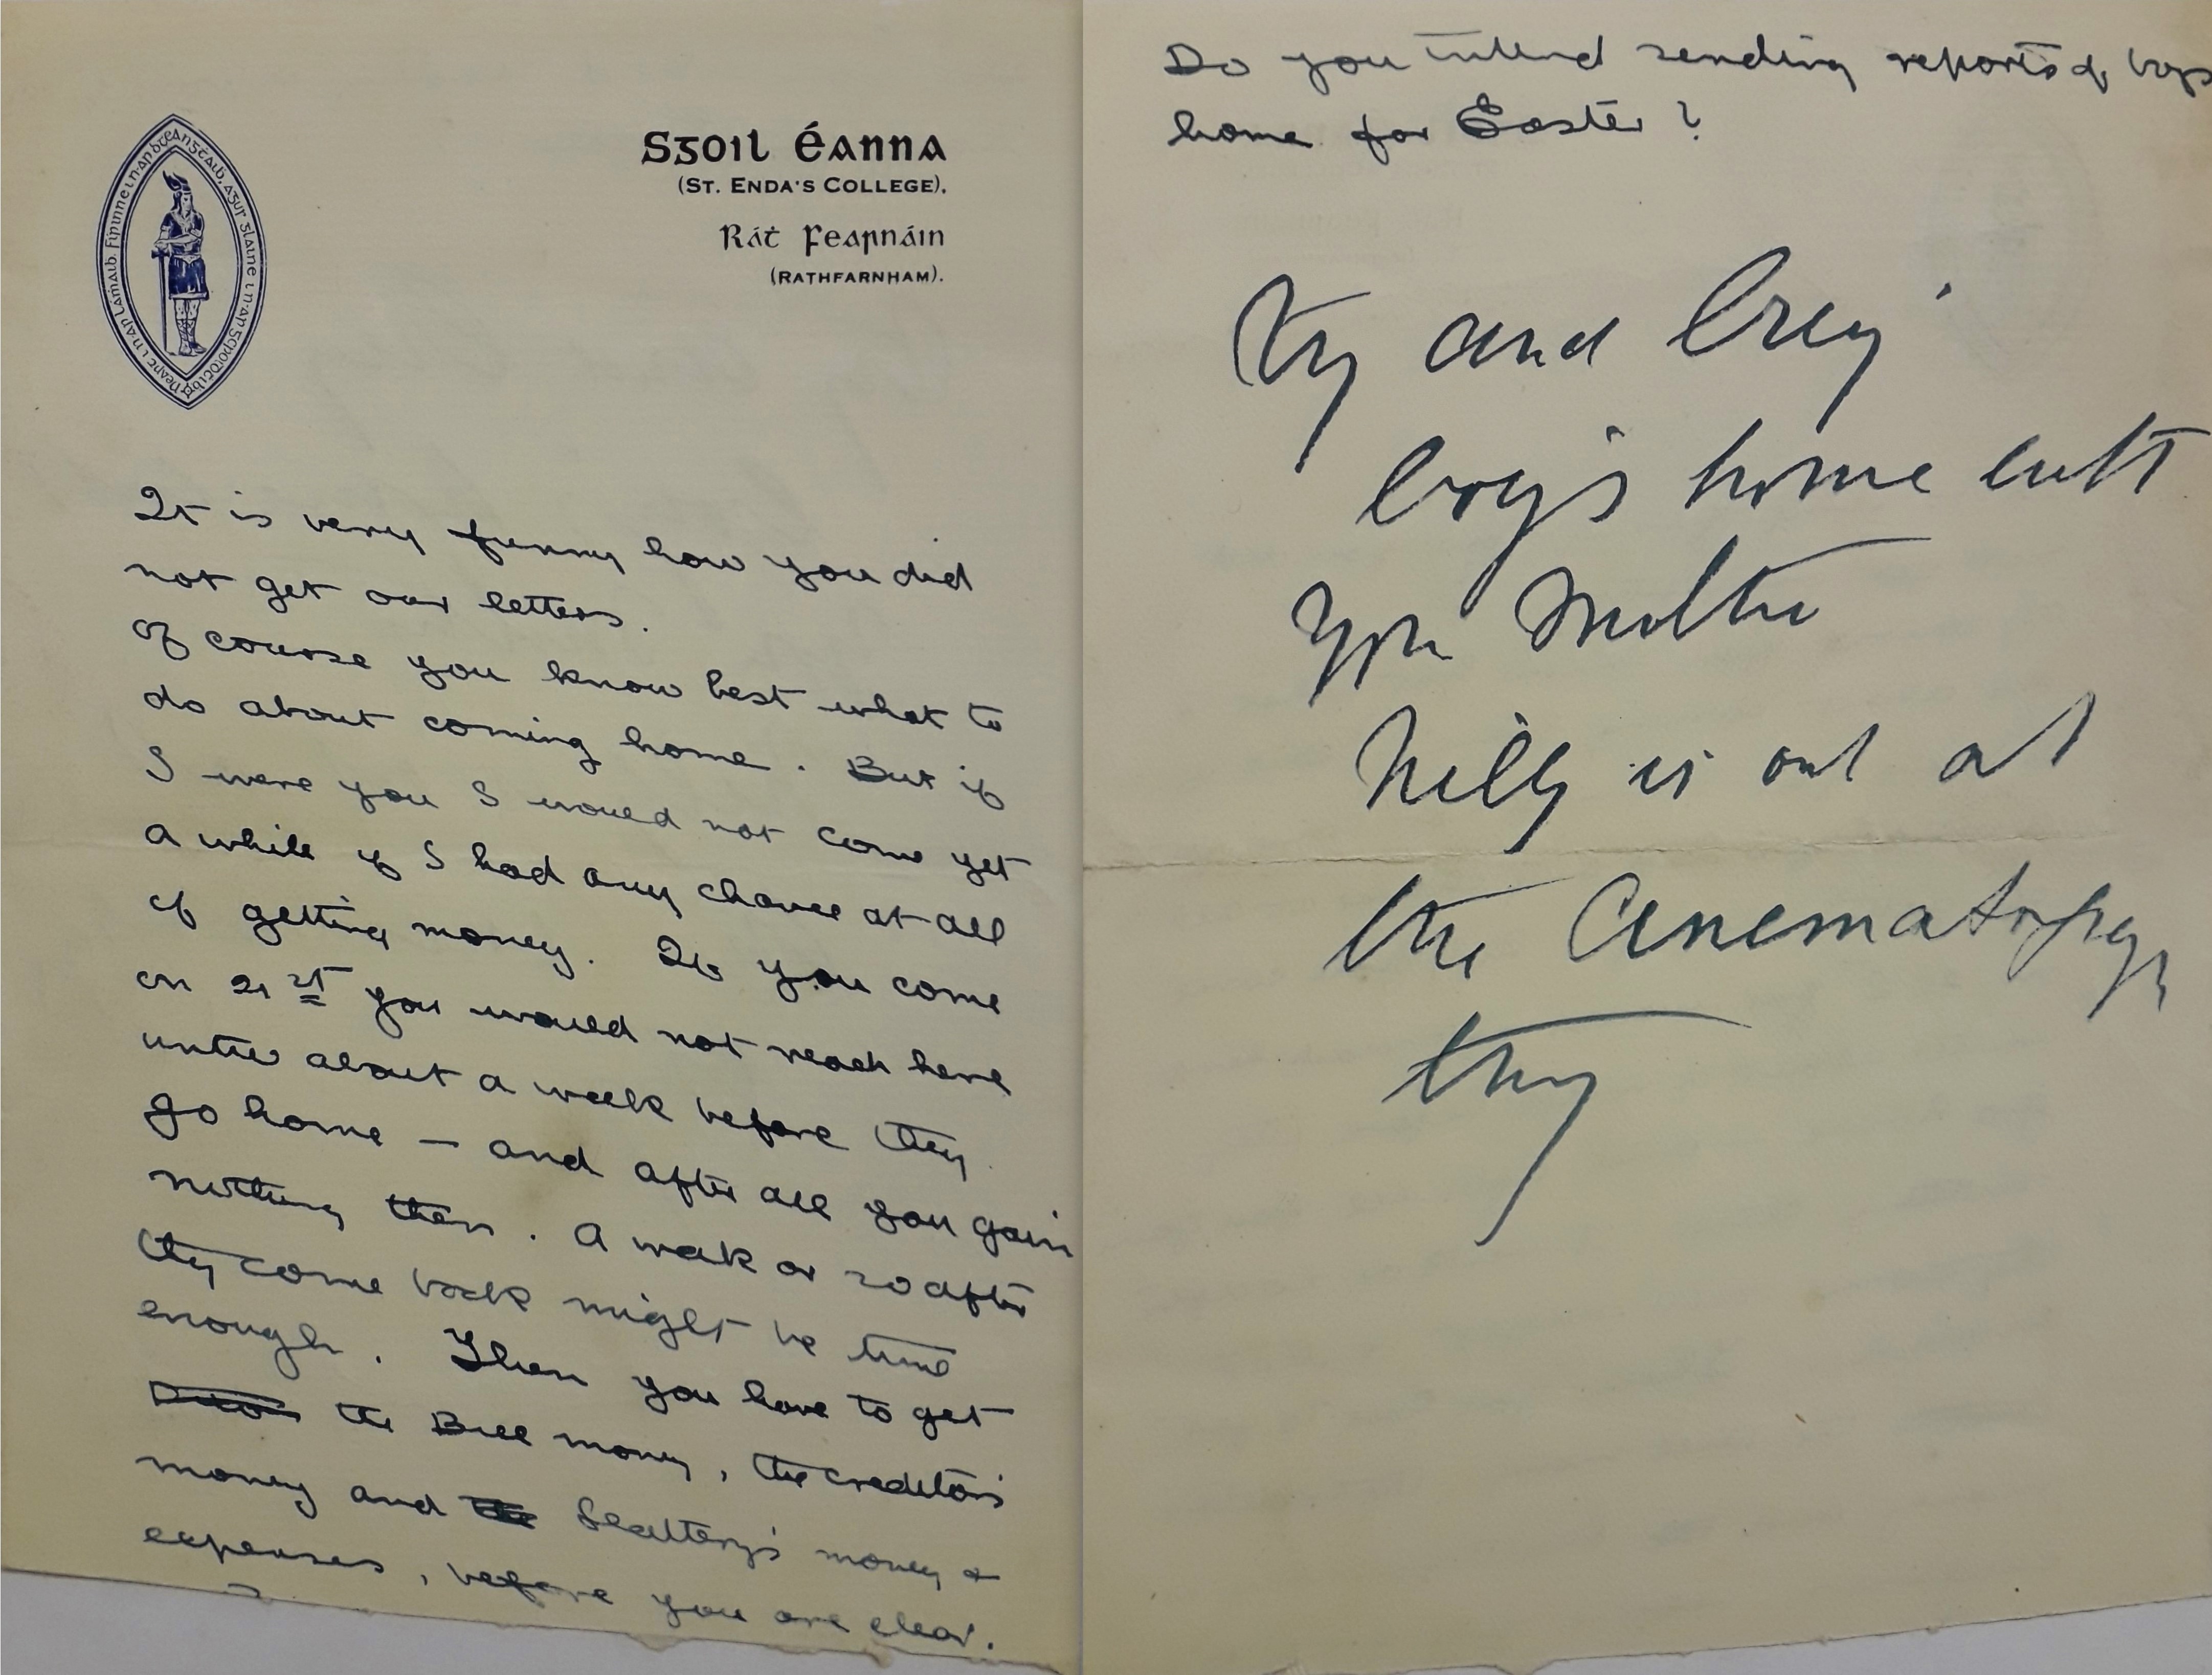 Sgoil Éanna
(St. Enda's College),
Ráṫ Fearnáin
(Rathfarnham).
It is very funny how you did
not get our letters.
Of course you know best what to
do about coming home. But if
I were you I would not come yet
a while if I had any chance at all
of getting money. If you come
on 21st you would not reach here
until about a week before they
go home — and after all you gain
nothing then. A week or so after
they come back might be time
enough. Then you have to get
the Bill money, the creditors
money and Slattery's money &
expenses, before you are clear.
Do you intend sending reports of boys
home for Easter?
Try and bring
boys home with
you Mother
Willy is out at
the Cinematogr